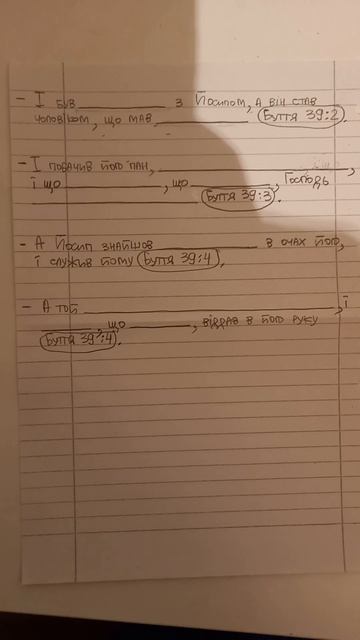 - І був __________ з Йосипом, а він став
чоловіком, що мав, __________ Буття 39:2.
- І побачив його пан, __________,
і що __________, що __________, Господь
__________ Буття 39:3.
- А Йосип знайшов __________ в очах його,
і служив йому Буття 39:4.
- А той __________, і
__________, що __________, віддав в його руку
Буття 39:4.